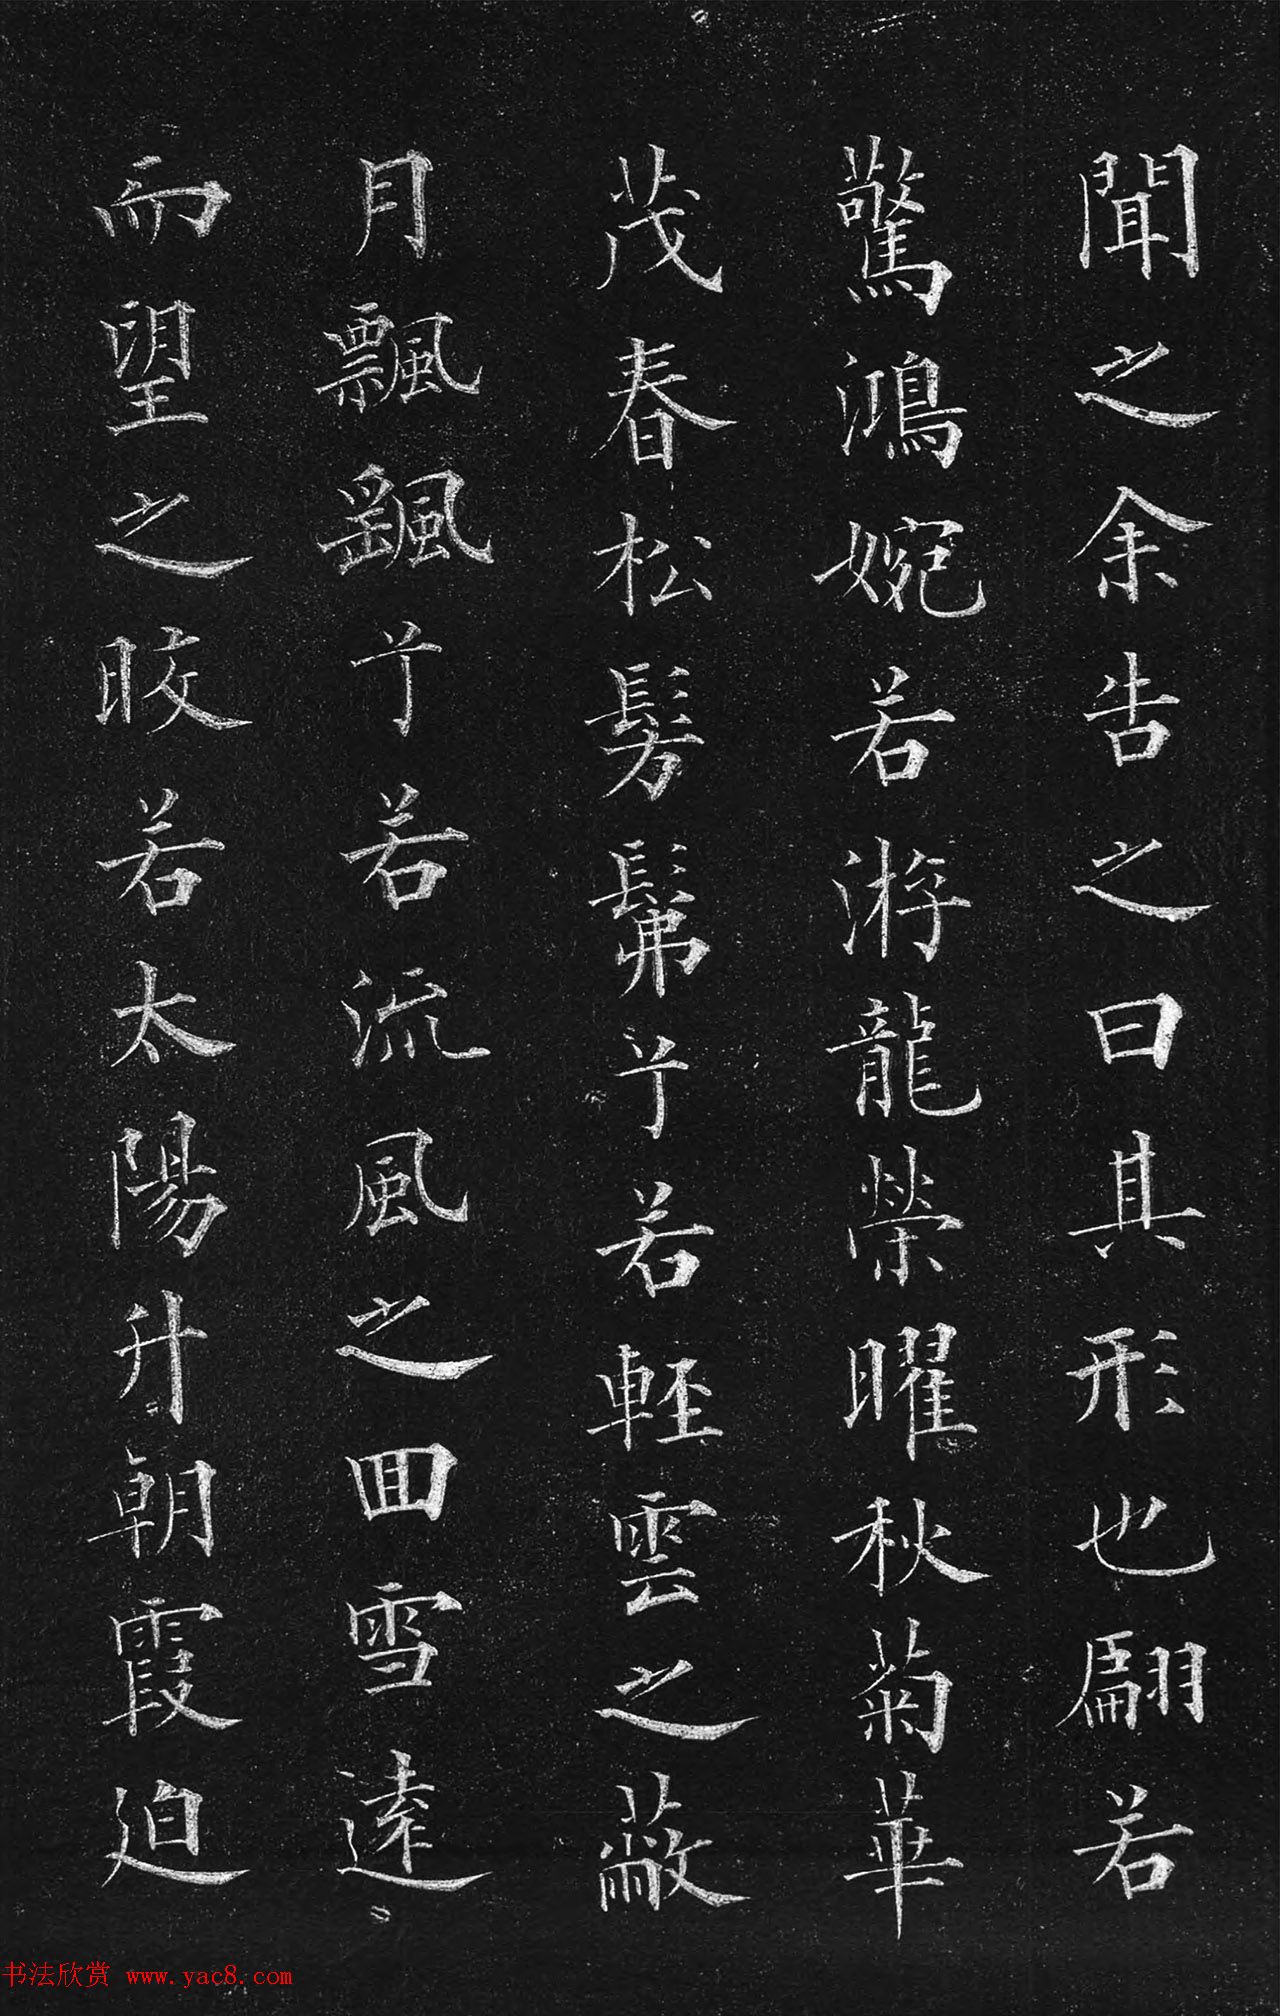 聞之余告之曰其形也翩若
驚鴻婉若游龍榮曜秋菊華
茂春松髣髴兮若輕雲之蔽
月飄颻兮若流風之回雪遠
而望之皎若太陽升朝霞迫
书法欣赏 www.yac8.com